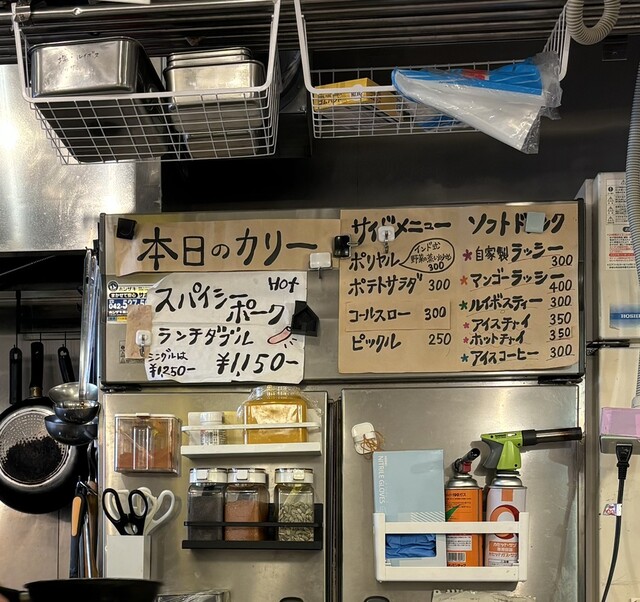 本日のカリー
Hot
スパイシー
ポーク
ランチダブル
¥1,150-
シングルは
¥1,250-
サイドメニュー
ポリヤル
インド式
野菜の蒸し炒め
300
ポテトサラダ 300
コールスロー 300
ピックル 250
ソフトドリンク
自家製ラッシー 300
マンゴーラッシー 400
ルイボスティー 300
アイスチャイ 350
ホットチャイ 350
アイスコーヒー 300
NITRILE GLOVES